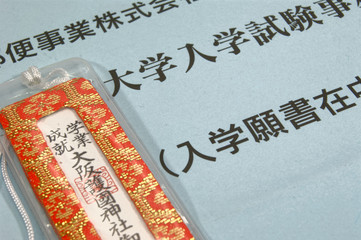 便事業株式会社
大学入学試験事
（入学願書在中
学業
成就
大阪護國神社御